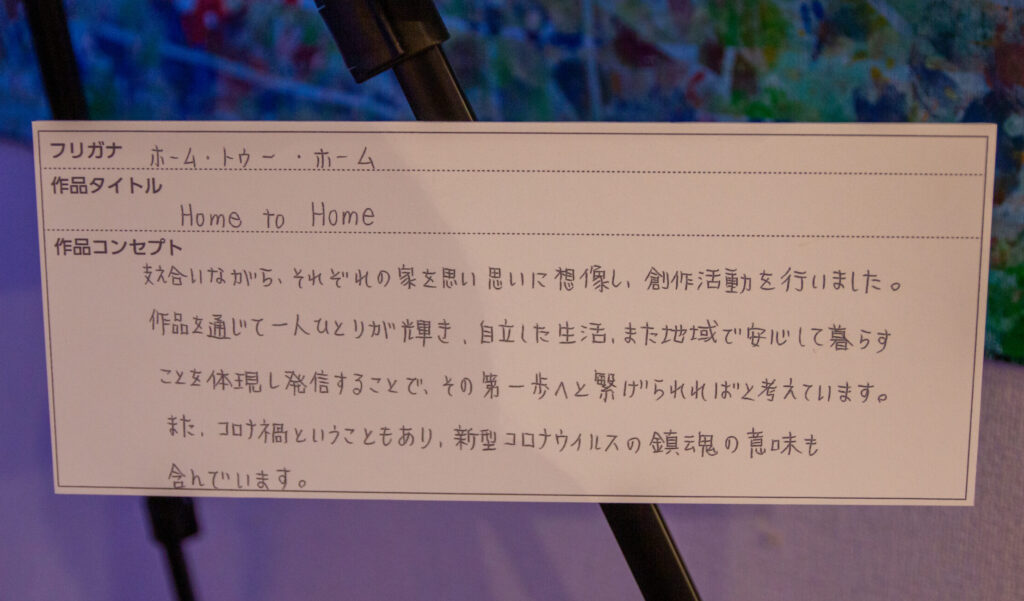 フリガナ ホーム・トゥー・ホーム
作品タイトル
Home to Home
作品コンセプト
支え合いながら、それぞれの家を思い思いに想像し、創作活動を行いました。
作品を通じて一人ひとりが輝き、自立した生活、また地域で安心して暮らす
ことを体現し発信することで、その第一歩へと繋げられればと考えています。
また、コロナ禍ということもあり、新型コロナウイルスの鎮魂の意味も
含んでいます。